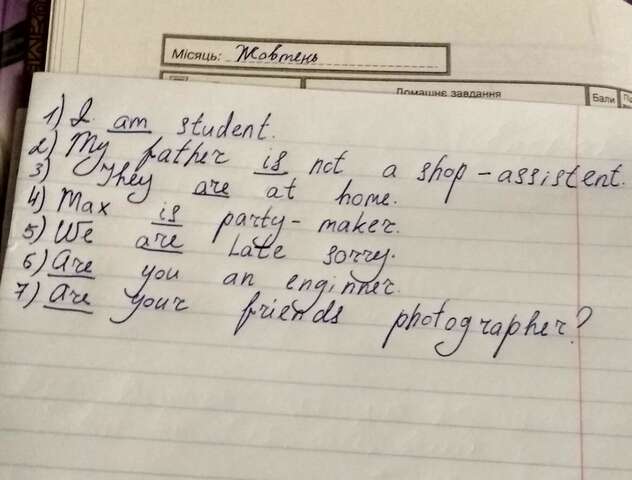 Місяць: Жовтень
Домашнє завдання
Бали
1) I am student.
2) My father is not a shop-assistent.
3) They are at home.
4) Max is party-maker.
5) We are late sorry.
6) Are you an enginner.
7) Are your friends photographer?